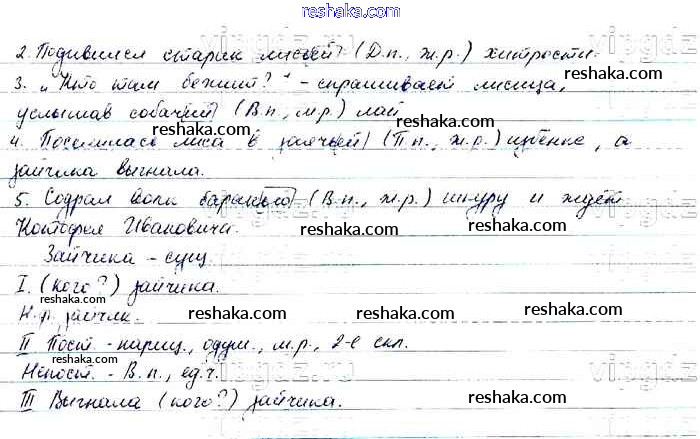 reshaka.com
2. Подивился старик лисьей (Д.п., ж.р.) хитрости.
3. „Кто там бежит?“ - спрашивает лисица,
услышав собачий (В.п., м.р.) лай
4. Поселилась лиса в заячьей (П.п., ж.р.) избёнке, а
зайчика выгнала.
5. Содрал волк баранью (В.п., ж.р.) шкуру и ждёт
Котофея Ивановича.
Зайчика - сущ.
I. (кого?) зайчика.
Н.ф. зайчик.
II Пост. - нариц., одуш., м.р., 2-е скл.
Непост. - В.п., ед.ч.
III Выгнала (кого?) зайчика.
reshaka.com
reshaka.com
reshaka.com
reshaka.com
reshaka.com
reshaka.com
reshaka.com
reshaka.com
reshaka.com
reshaka.com
reshaka.com
reshaka.com
reshaka.com